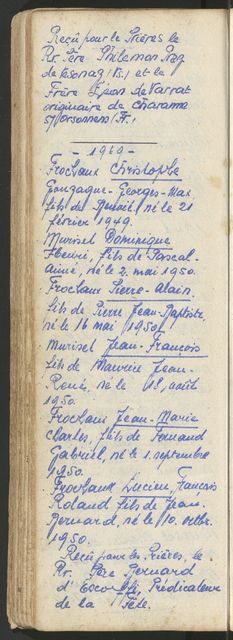 Reçu pour les Prières le
Rr. Père Philemon Roy
de Vesonaz (Vs.) et le
Frère Jean de Varrat
originaire de Charanne
s/ Orsonnens (Fr.)
- 1960 -
Frochaux Christophe
Gonzague- Georges-Max
fils de Benoît né le 21
février 1949.
Muriset Dominique
Henri, fils de Pascal-
Aimé, né le 2. mai 1950.
Frochaux Pierre-Alain.
fils de Pierre Jean-Baptiste
né le 16 mai 1950.
Muriset Jean-François
fils de Maurice Jean-
René, né le 18, août
1950.
Frochaux Jean-Marie
Charles, fils de Fernand
Gabriel, né le 1. septembre
1950.
Frochaux Lucien, François
Roland fils de Jean-
Bernard, né le 10. octbr.
1950.
Reçu pour les Prières, le
Rr. Père Bernard
d' Prédicateur
de la Fête.